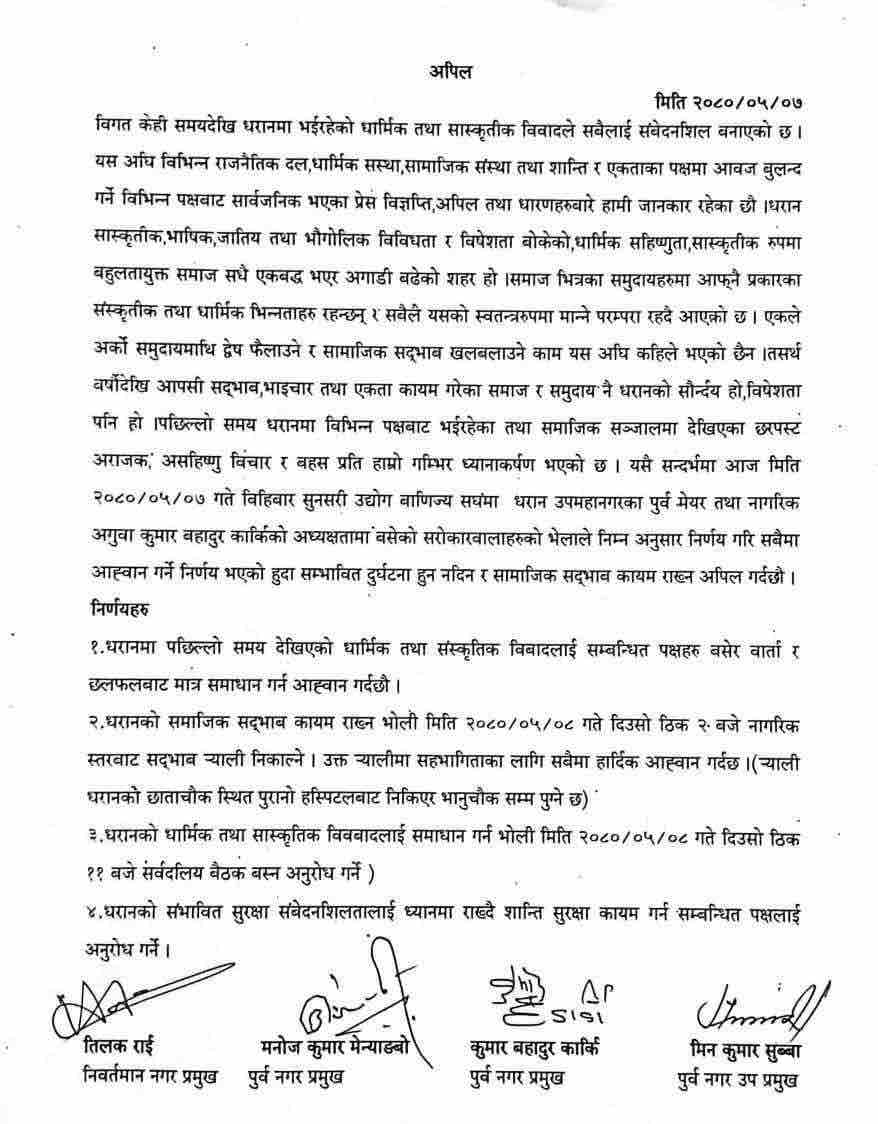 अपिल
मिति २०८०/०५/०७
विगत केही समयदेखि धरानमा भईरहेको धार्मिक तथा सास्कृतीक विवादले सबैलाई संबेदनशिल बनाएको छ ।
यस अघि विभिन्न राजनैतिक दल,धार्मिक सस्था,सामाजिक संस्था तथा शान्ति र एकताका पक्षमा आवज बुलन्द
गर्ने विभिन्न पक्षबाट सार्वजनिक भएका प्रेस विज्ञप्ति,अपिल तथा धारणहरुबारे हामी जानकार रहेका छौ ।धरान
सास्कृतीक,भाषिक,जातिय तथा भौगोलिक विविधता र विषेशता बोकेको,धार्मिक सहिष्णुता,सास्कृतीक रुपमा
बहुलतायुक्त समाज सधै एकबद्ध भएर अगाडी बढेको शहर हो ।समाज भित्रका समुदायहरुमा आफ्नै प्रकारका
संस्कृतीक तथा धार्मिक भिन्नताहरु रहन्छन् र सबैले यसको स्वतन्त्ररुपमा मान्ने परम्परा रहदै आएको छ । एकले
अर्को समुदायमाथि द्वेष फैलाउने र सामाजिक सद्भाव खलबलाउने काम यस अघि कहिले भएको छैन ।तसर्थ
वर्षौदेखि आपसी सद्भाव,भाइचार तथा एकता कायम गरेका समाज र समुदाय नै धरानको सौर्न्दय हो,विषेशता
पनि हो ।पछिल्लो समय धरानमा विभिन्न पक्षबाट भईरहेका तथा समाजिक सञ्जालमा देखिएका छरपस्ट
अराजक, असहिष्णु विचार र बहस प्रति हाम्रो गम्भिर ध्यानाकर्षण भएको छ । यसै सन्दर्भमा आज मिति
२०८०/०५/०७ गते विहिवार सुनसरी उद्योग बाणिज्य सघंमा धरान उपमहानगरका पुर्व मेयर तथा नागरिक
अगुवा कुमार बहादुर कार्किको अध्यक्षतामा बसेको सरोकारवालाहरुको भेलाले निम्न अनुसार निर्णय गरि सबैमा
आह्वान गर्ने निर्णय भएको हुदा सम्भावित दुर्घटना हुन नदिन र सामाजिक सद्भाव कायम राख्न अपिल गर्दछौ ।
निर्णयहरु
१.धरानमा पछिल्लो समय देखिएको धार्मिक तथा संस्कृतिक विबादलाई सम्बन्धित पक्षहरु बसेर वार्ता र
छलफलबाट मात्र समाधान गर्न आह्वान गर्दछौ ।
२.धरानको समाजिक सद्भाव कायम राख्न भोली मिति २०८०/०५/०८ गते दिउसो ठिक २ बजे नागरिक
स्तरबाट सद्भाव र्‍याली निकाल्ने । उक्त र्‍यालीमा सहभागिताका लागि सबैमा हार्दिक आह्वान गर्दछ ।(र्‍याली
धरानको छाताचौक स्थित पुरानो हस्पिटलबाट निकिएर भानुचौक सम्म पुग्ने छ)
३.धरानको धार्मिक तथा सास्कृतिक विववादलाई समाधान गर्न भोली मिति २०८०/०५/०८ गते दिउसो ठिक
११ बजे सर्वदलिय बैठक बस्न अनुरोध गर्ने )
४.धरानको संभावित सुरक्षा संबेदनशिलतालाई ध्यानमा राख्दै शान्ति सुरक्षा कायम गर्न सम्बन्धित पक्षलाई
अनुरोध गर्ने ।
तिलक राई मनोज कुमार मेन्याङबो कुमार बहादुर कार्कि मिन कुमार सुब्बा
निवर्तमान नगर प्रमुख पुर्व नगर प्रमुख पुर्व नगर प्रमुख पुर्व नगर उप प्रमुख